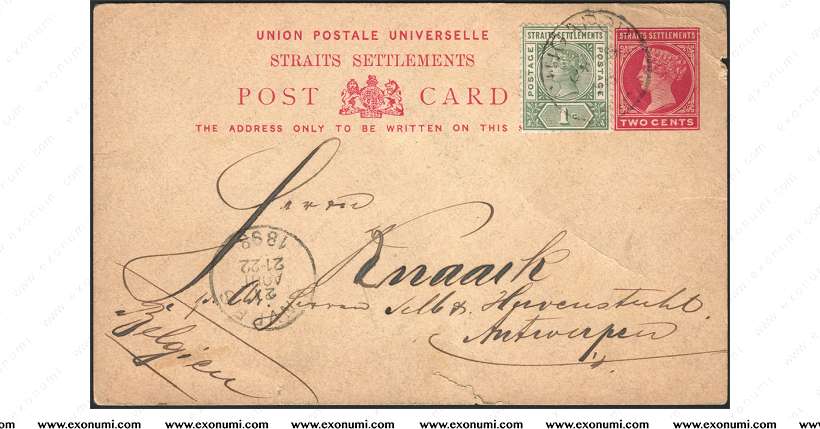 UNION POSTALE UNIVERSELLE
STRAITS SETTLEMENTS
POST CARD
THE ADDRESS ONLY TO BE WRITTEN ON THIS
STRAITS SETTLEMENTS
POSTAGE POSTAGE
1
STRAITS SETTLEMENTS
TWO CENTS
Herrn
Knaack
Herren Selb &
Antwerpen
Belgien
21-22
189
www.exonumi.com www.exonumi.com www.exonumi.com www.exonumi.com www.exonumi.com